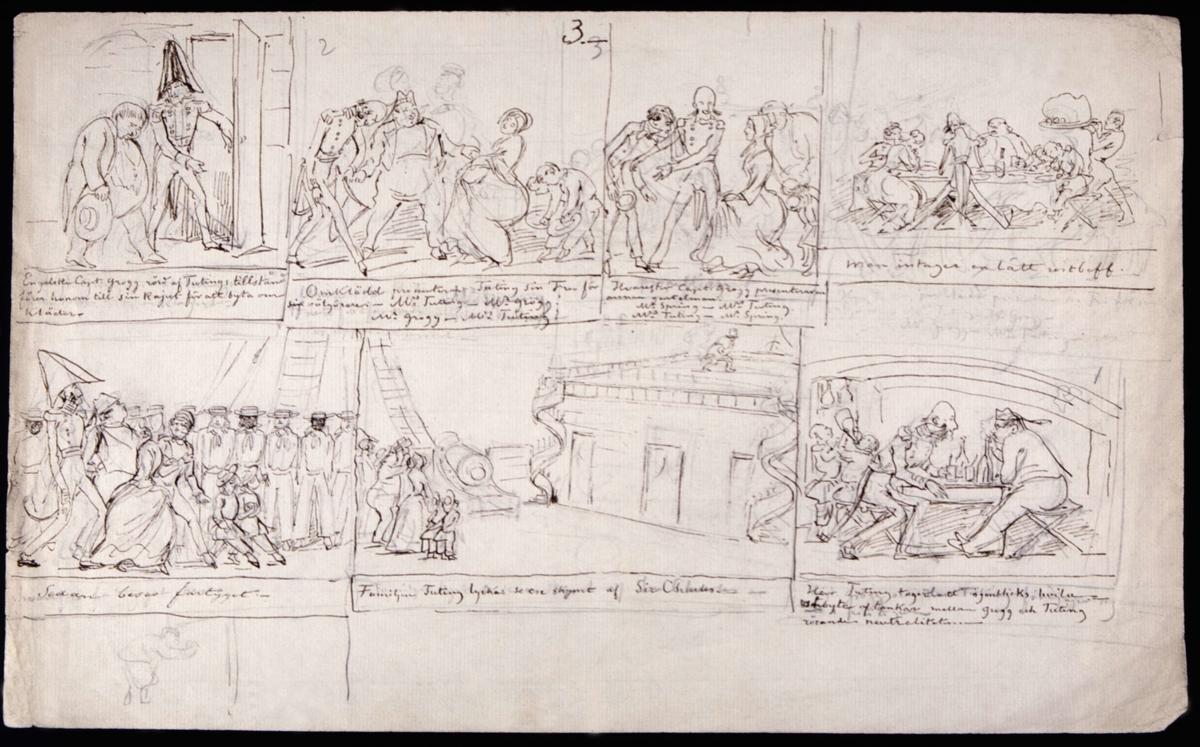 2
3.
3
Engelske Capt. Grogg rörd af Tutings tillstånd
förer honom till sin Kajut för att byta om
kläder.
Omklädd presenterar Tuting sin Fru för
sin välgörare. — Mrs Tuting — Mr Grogg!
Mr Grogg — Mrs Tuting!
Hvarefter Capt. Grogg presenterar en
annan gentelman.
Mr Spring — Mrs Tuting.
Mrs Tuting — Mr Spring.
Man intager en lätt bitbeff.
Sedan beses fartyget. —
Familjen Tuting lyckas se en skymt af Sir Charles. —
Herr Tuting tager ett ögonblicks hvila —
utbyte af tankar mellan Grogg och Tuting
rörande neutraliteten. —